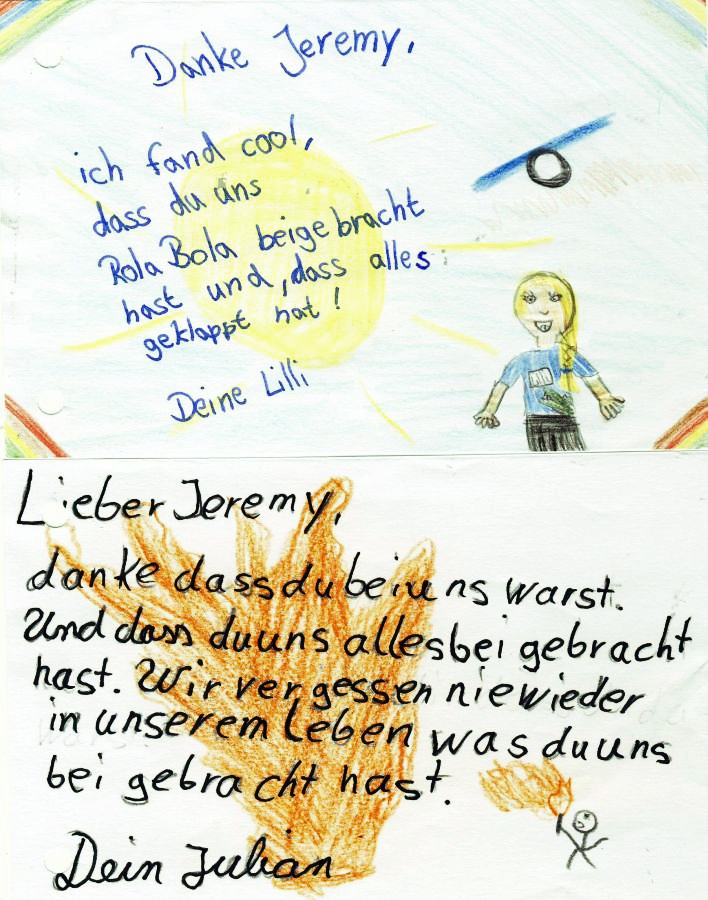 Danke Jeremy,
ich fand cool,
dass du uns
Rola Bola beigebracht
hast und, dass alles
geklappt hat!
Deine Lilli
Lieber Jeremy,
danke dass du bei uns warst.
Und dass du uns alles bei gebracht
hast. Wir vergessen nie wieder
in unserem Leben was du uns
bei gebracht hast.
Dein Julian